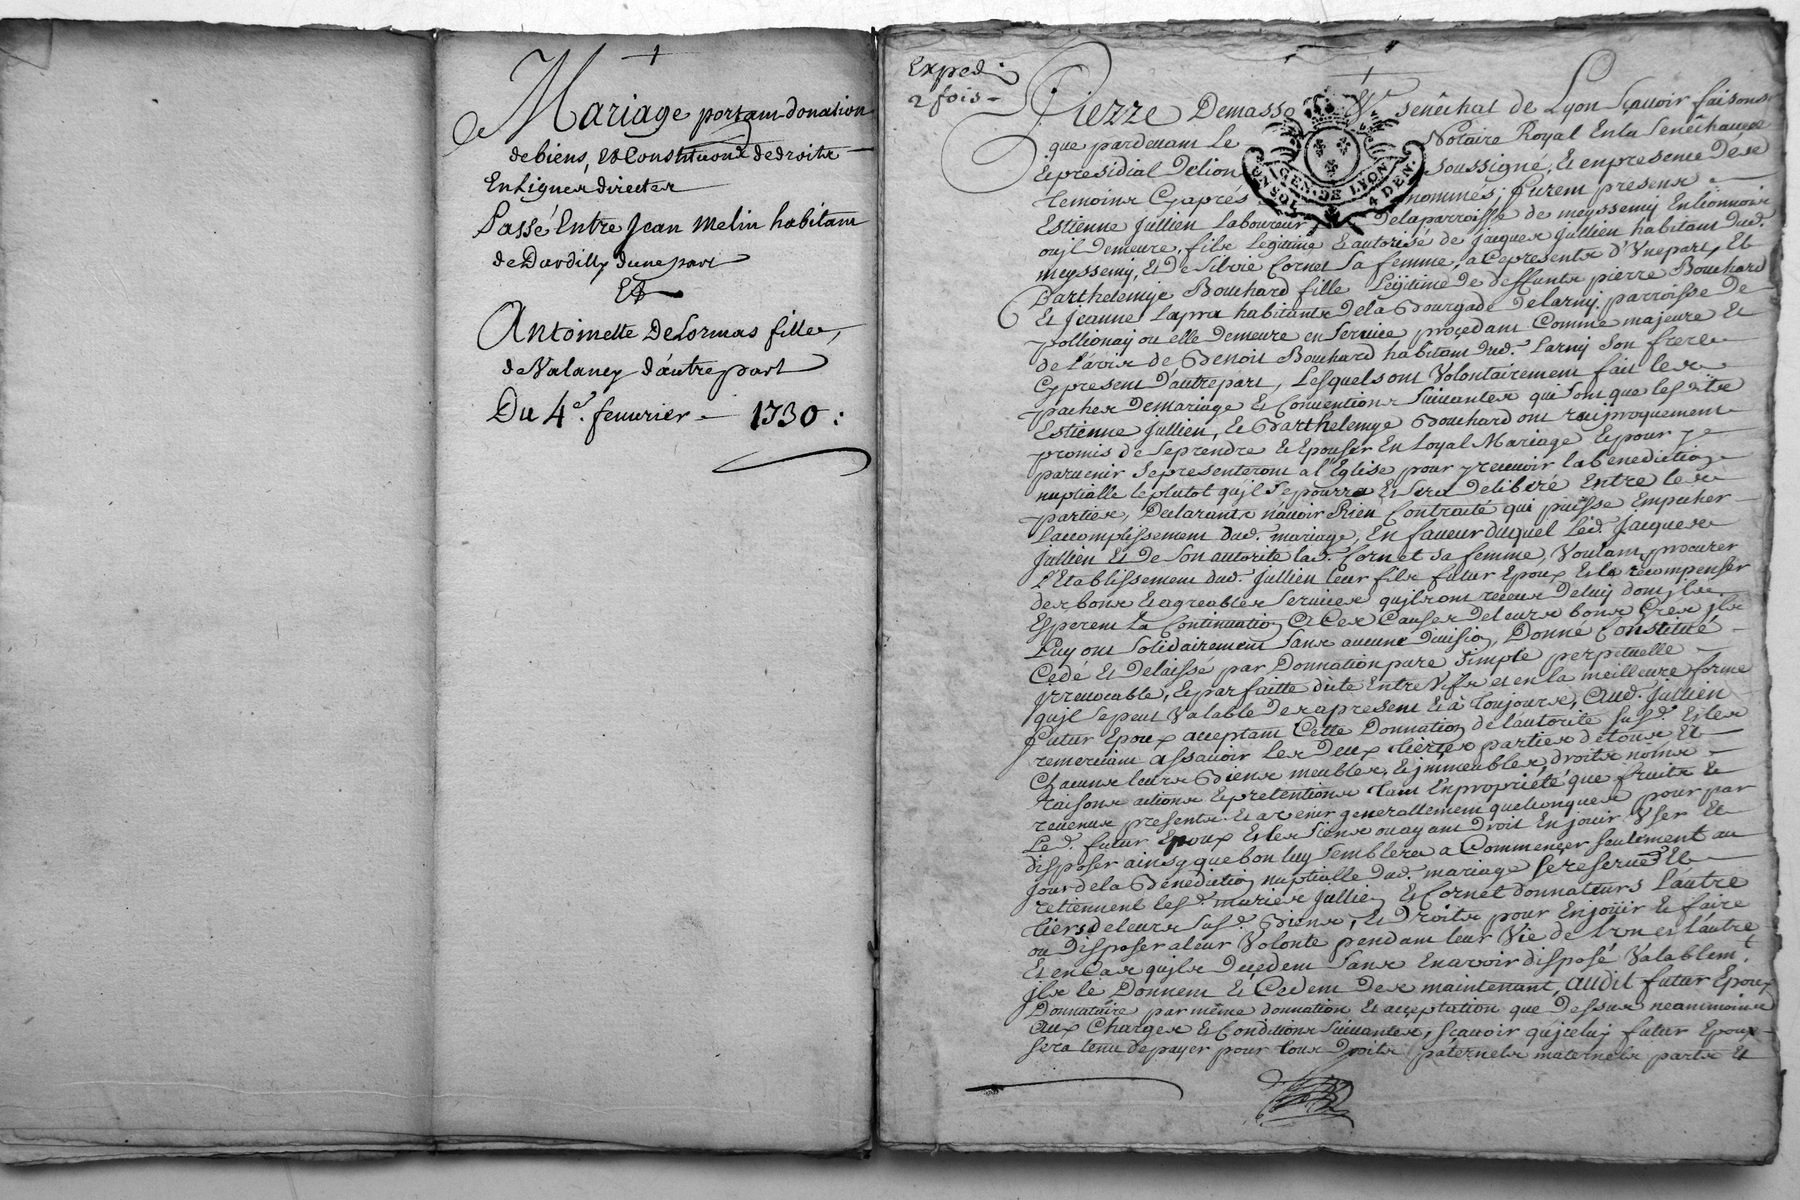 Mariage portant donation
de biens, et Constitution de droits
En Lignes directes
Passé Entre Jean Melin habitant
de Dardilly d'une part
Et
Antoinette Delormas fille
de d'autre part
Du 4e. feuurier 1730 :
Exped.
2 fois
Pierre Demasso senêchal de Lyon Sçavoir faisons
que pardeuant Le Notaire Royal En la Senêchaussée
et presidial Delion soussigné, et en presence des
temoins Cyaprés nommés, furent presens
GEN. DE LYON
4 DEN.
Estienne Jullien Laboureur de la parroisse de meyssemy En lionnois
ou jl Demeure, fils Legitime et autorisé de jacques Jullien habitant dud.
meyssemy, et de Silvie Cornet sa femme, a ce presents d'Une part, Et
Barthelemye Bouchard fille Legitime de deffunts pierre Bouchard
et Jeanne Lapra habitants de la Bourgade de larny parroisse de
pollionay ou elle Demeure en service, proçedant Comme majeure et
de l'avis de Benoit Bouchard habitant dud. Larny son frere
Cy present D'autre part, Lesquels ont Volontairement fait les
paches De mariage et Conventions Suiuantes qui sont que lesd.
Estienne Jullien, et Barthelemye Bouchard ont reciproquement
promis de se prendre et Epouser En Loyal Mariage et pour y
paruenir se presenteront a l'Eglise pour y receuoir la benediction
nuptialle le plutot qu'jl se pourra et sera Deliberé Entre les
parties, Declarants n'auoir Rien Contracté qui puisse Empecher
L'accomplissement dud. mariage, En faueur duquel Led. Jacques
Jullien et de son autorité lad. Cornet sa femme, Voulant procurer
L'Etablissement dud. Jullien leur fils futur Epoux et le recompenser
des bons et agreables seruices qu'jls ont receus De luy dont jls
Esperent La Continuation a Ces Causes De leurs bons Grés jls
Luy ont Solidairement sans aucune Diuision, Donné Constitué
Cedé et Delaissé par Donnation pure Simple perpetuelle
yrreuocable, et parfaitte dite Entre Vifs et en la meilleure forme
qu'jl se peut Valable Des apresent et à Toujours, Aud. Jullien
futur Epoux acceptant Cette Donnation de l'autorité susd. et les
remerciant assavoir Les Deux Tierces parties de tous et
Chacuns leurs Biens meubles, et jmmeubles droits noms
raisons actions et pretentions Tant En proprieté que fruits et
reuenus presents et avenir generallement quelconques pour par
Led. futur Epoux et les siens ou ayant Droit En jouir Vser et
disposer ainsy que bon luy semblera a Commençer seulement au
jour de la Benediction nuptialle dud. mariage se reseruent Et
retiennent lesd. mariés Jullien et Cornet donnateurs L'autre
Tiers de leurs susd. Biens, et Droits pour En joüir et faire
ou Disposer a leur Volonté pendant leur Vie de l'un et l'autre
Et en Cas qu'jls Decedent sans En avoir disposé Valablemt.
jls le Donnent et Cedent Des maintenant, audit futur Epoux
Donnataire par même donnation et acçeptation que Dessus neammoins
aux Charges et Conditions Suiuantes, sçauoir qu'jceluy futur Epoux
sera tenu de payer pour tous Droits paternels maternels parts et